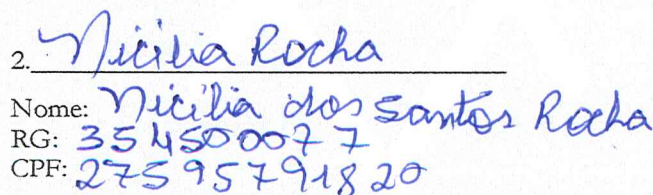 2. Nicília Rocha
Nome: Nicília dos Santos Rocha
RG: 354500077
CPF: 27595791820